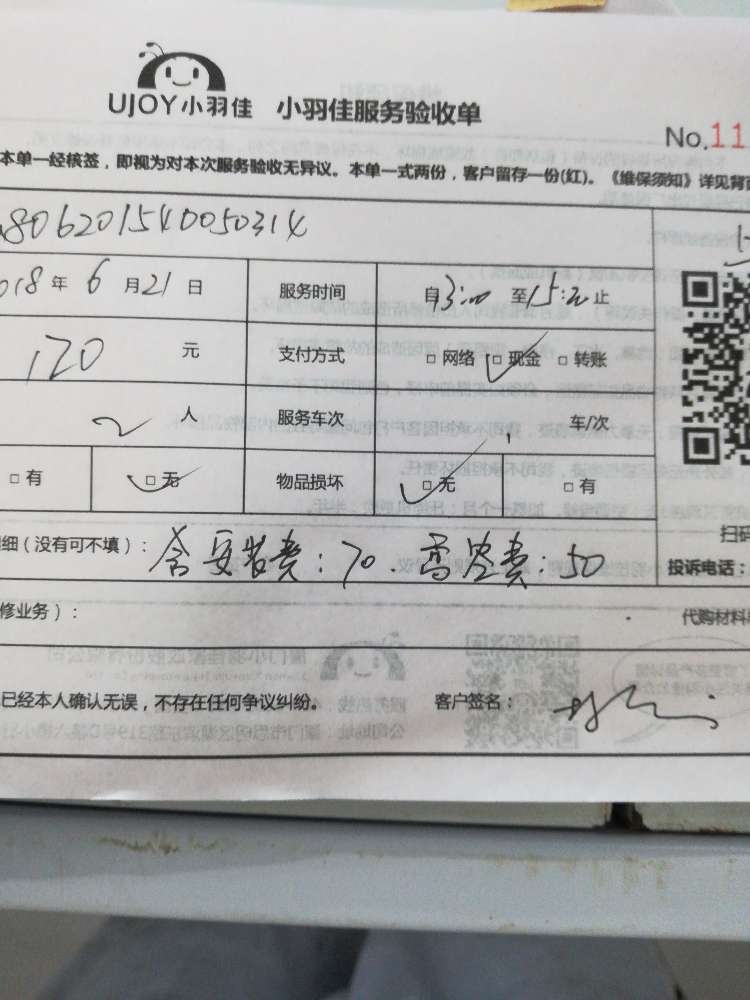 UJOY小羽佳 小羽佳服务验收单
No.11
本单一经核签，即视为对本次服务验收无异议。本单一式两份，客户留存一份(红)。《维保须知》详见背
806201540050314
018年6月21日 服务时间 自3:00至15:20止
120元 支付方式 □网络 □现金 □转账
2人 服务车次 车/次
□有 □无 物品损坏 □无 □有
细（没有可不填）： 含安装费：70. 高空费：50
扫码
投诉电话：
修业务）：
代购材料
已经本人确认无误，不存在任何争议纠纷。 客户签名：